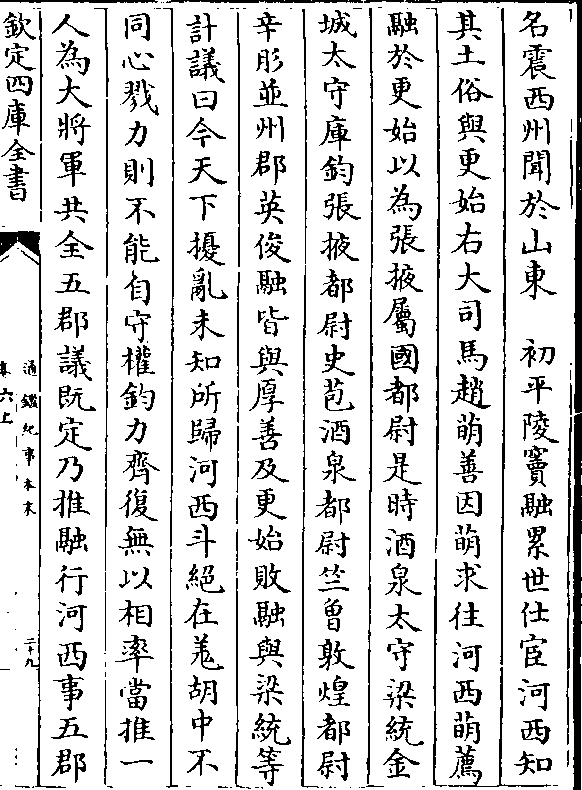 名震西州聞於山東　初平陵竇融累世仕宦河西知
其土俗與更始右大司馬趙萌善因萌求往河西萌薦
融於更始以為張掖屬國都尉是時酒泉太守梁統金
城太守庫鈞張掖都尉史苞酒泉都尉竺曾敦煌都尉
辛肜並州郡英俊融皆與厚善及更始敗融與梁統等
計議曰今天下擾亂未知所歸河西斗絕在羗胡中不
同心戮力則不能自守權鈞力齊復無以相率當推一
人為大將軍共全五郡議既定乃推融行河西事五郡
欽定四庫全書
通鑑紀事本末
卷六上
二十九